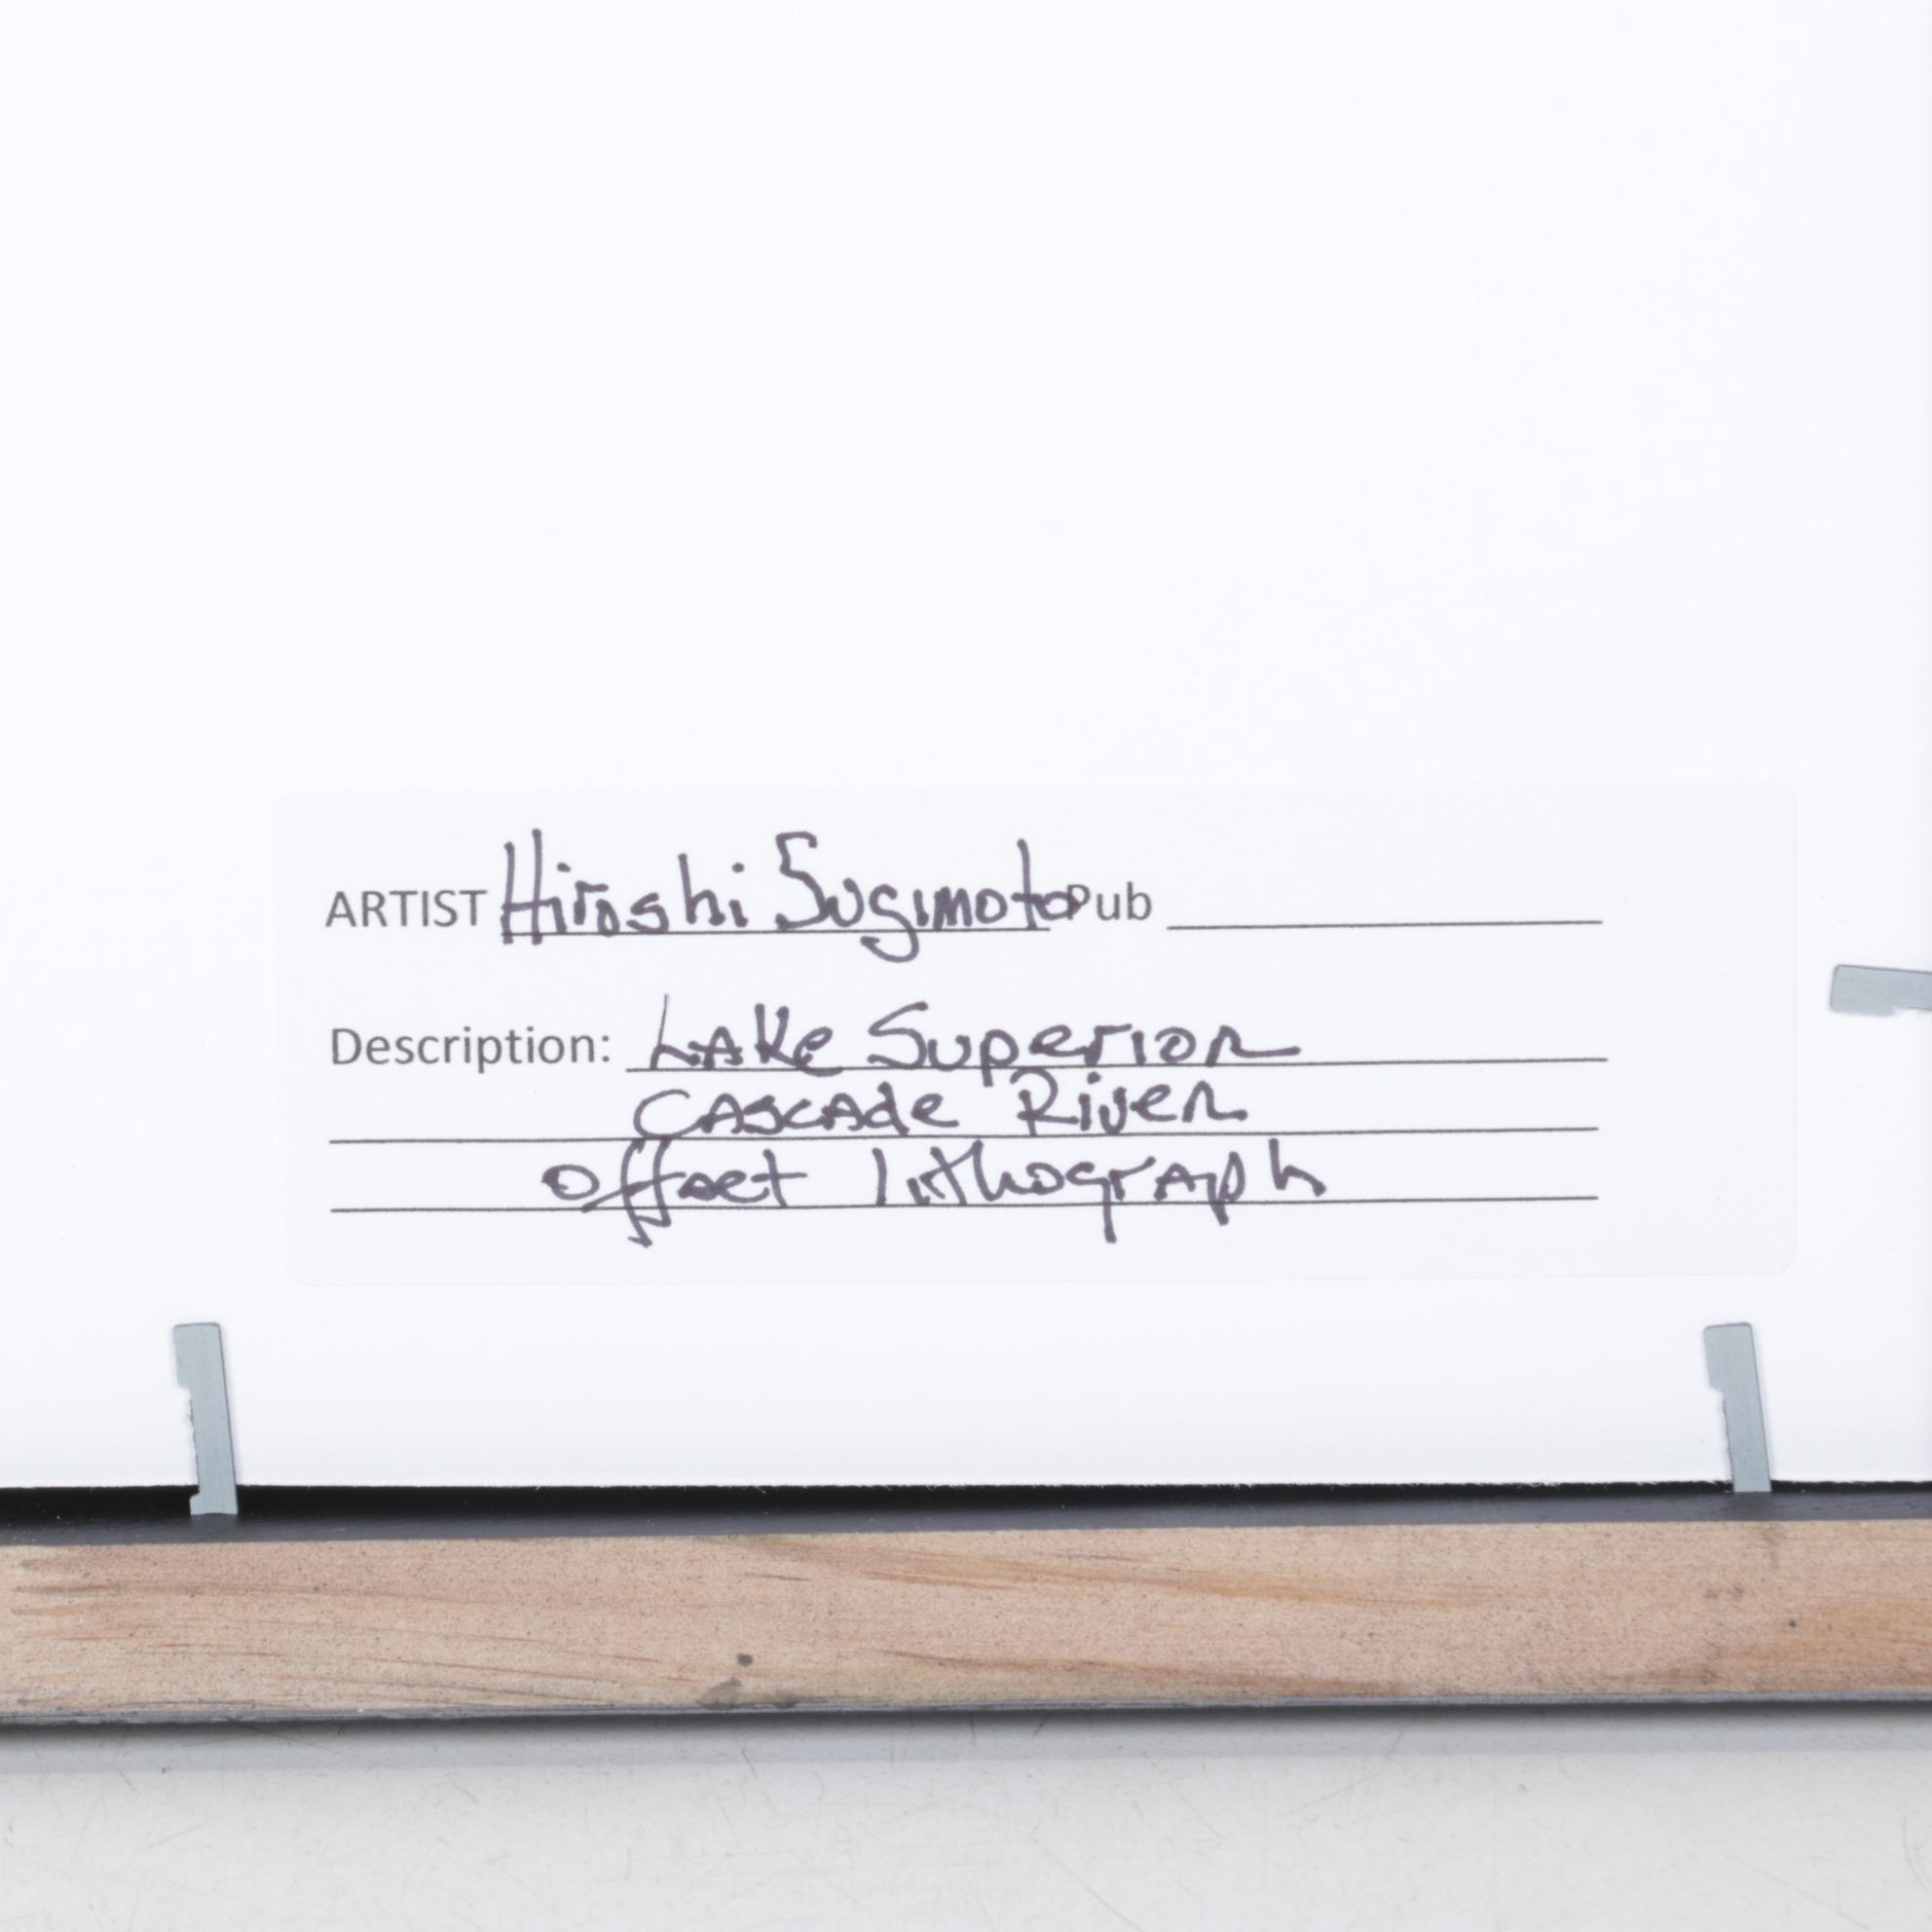 ARTIST Hiroshi Sugimoto Pub
Description: Lake Superior
Cascade River
Offset lithograph